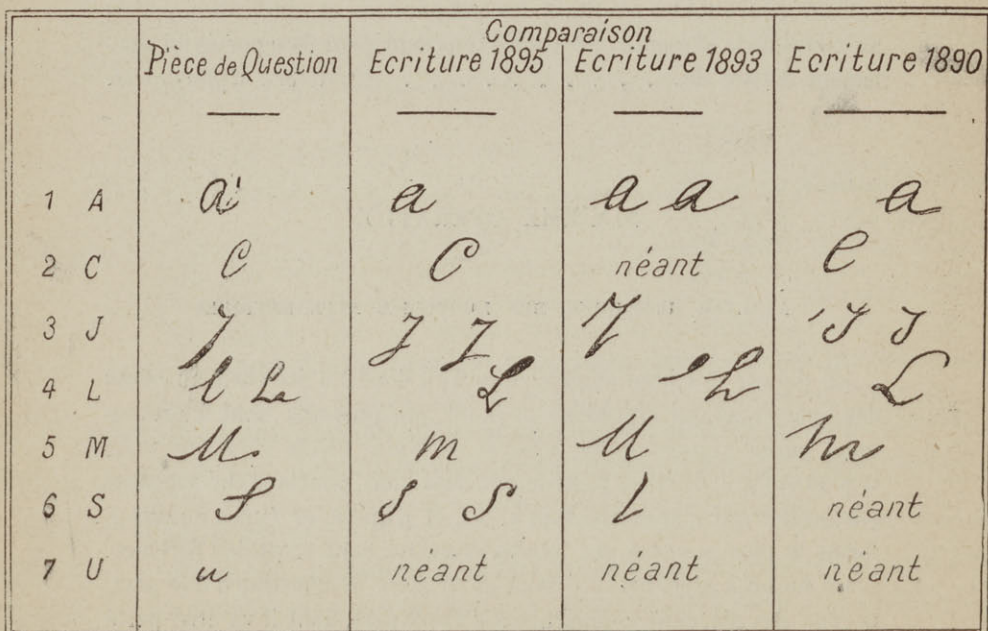 Comparaison
Pièce de Question Ecriture 1895 Ecriture 1893 Ecriture 1890
1 A a' a a a a
2 C C C néant C
3 J J J J J J J
4 L l La L L L
5 M M. m M m
6 S S S S néant
7 U u néant néant néant